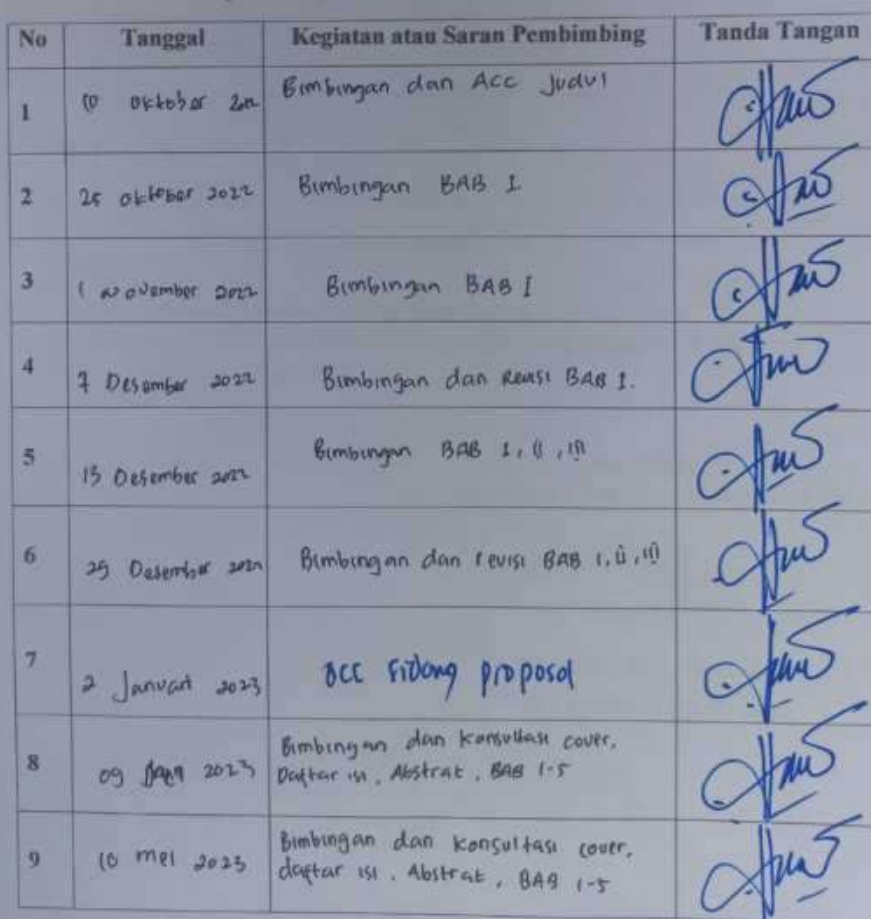 No Tanggal Kegiatan atau Saran Pembimbing Tanda Tangan
1 10 oktober Bimbingan dan Acc Judul
2 25 oktober 2022 Bimbingan BAB I
3 1 november 2022 Bimbingan BAB I
4 7 Desember 2022 Bimbingan dan Revisi BAB I.
5 15 Desember 2022 Bimbingan BAB I, II, III
6 25 Desember 2022 Bimbingan dan revisi BAB I, II, III
7 2 Januari 2023 acc sidang proposal
8 09 2023 Bimbingan dan Konsultasi cover,
Daftar isi, Abstrat, BAB 1-5
9 10 mei 2023 Bimbingan dan Konsultasi cover,
daftar isi, Abstrat, BAB 1-5